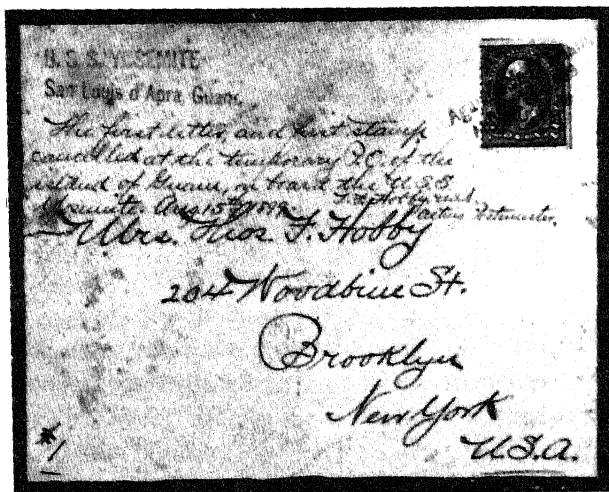 U.S.S. YOSEMITE
San Louis d'Apra, Guam.
The first letter, and first stamp
cancelled at the temporary P.O. of the
island of Guam, on board the U.S.S.
Yosemite. Aug 15th 1899.
Acting Postmaster.
Mrs. Thos. F. Hobby
204 Woodbine St.
Brooklyn
New York
U.S.A.
#1